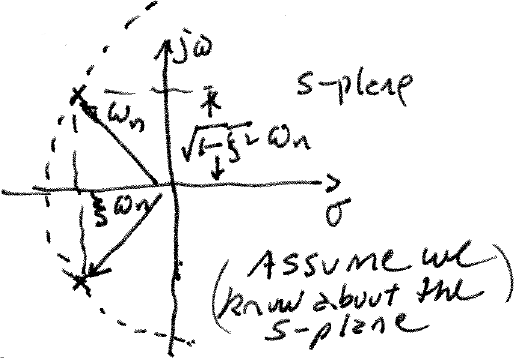 jω
s-plane
ωn
√1-ξ² ωn
ξωn
σ
(Assume we
know about the
s-plane)